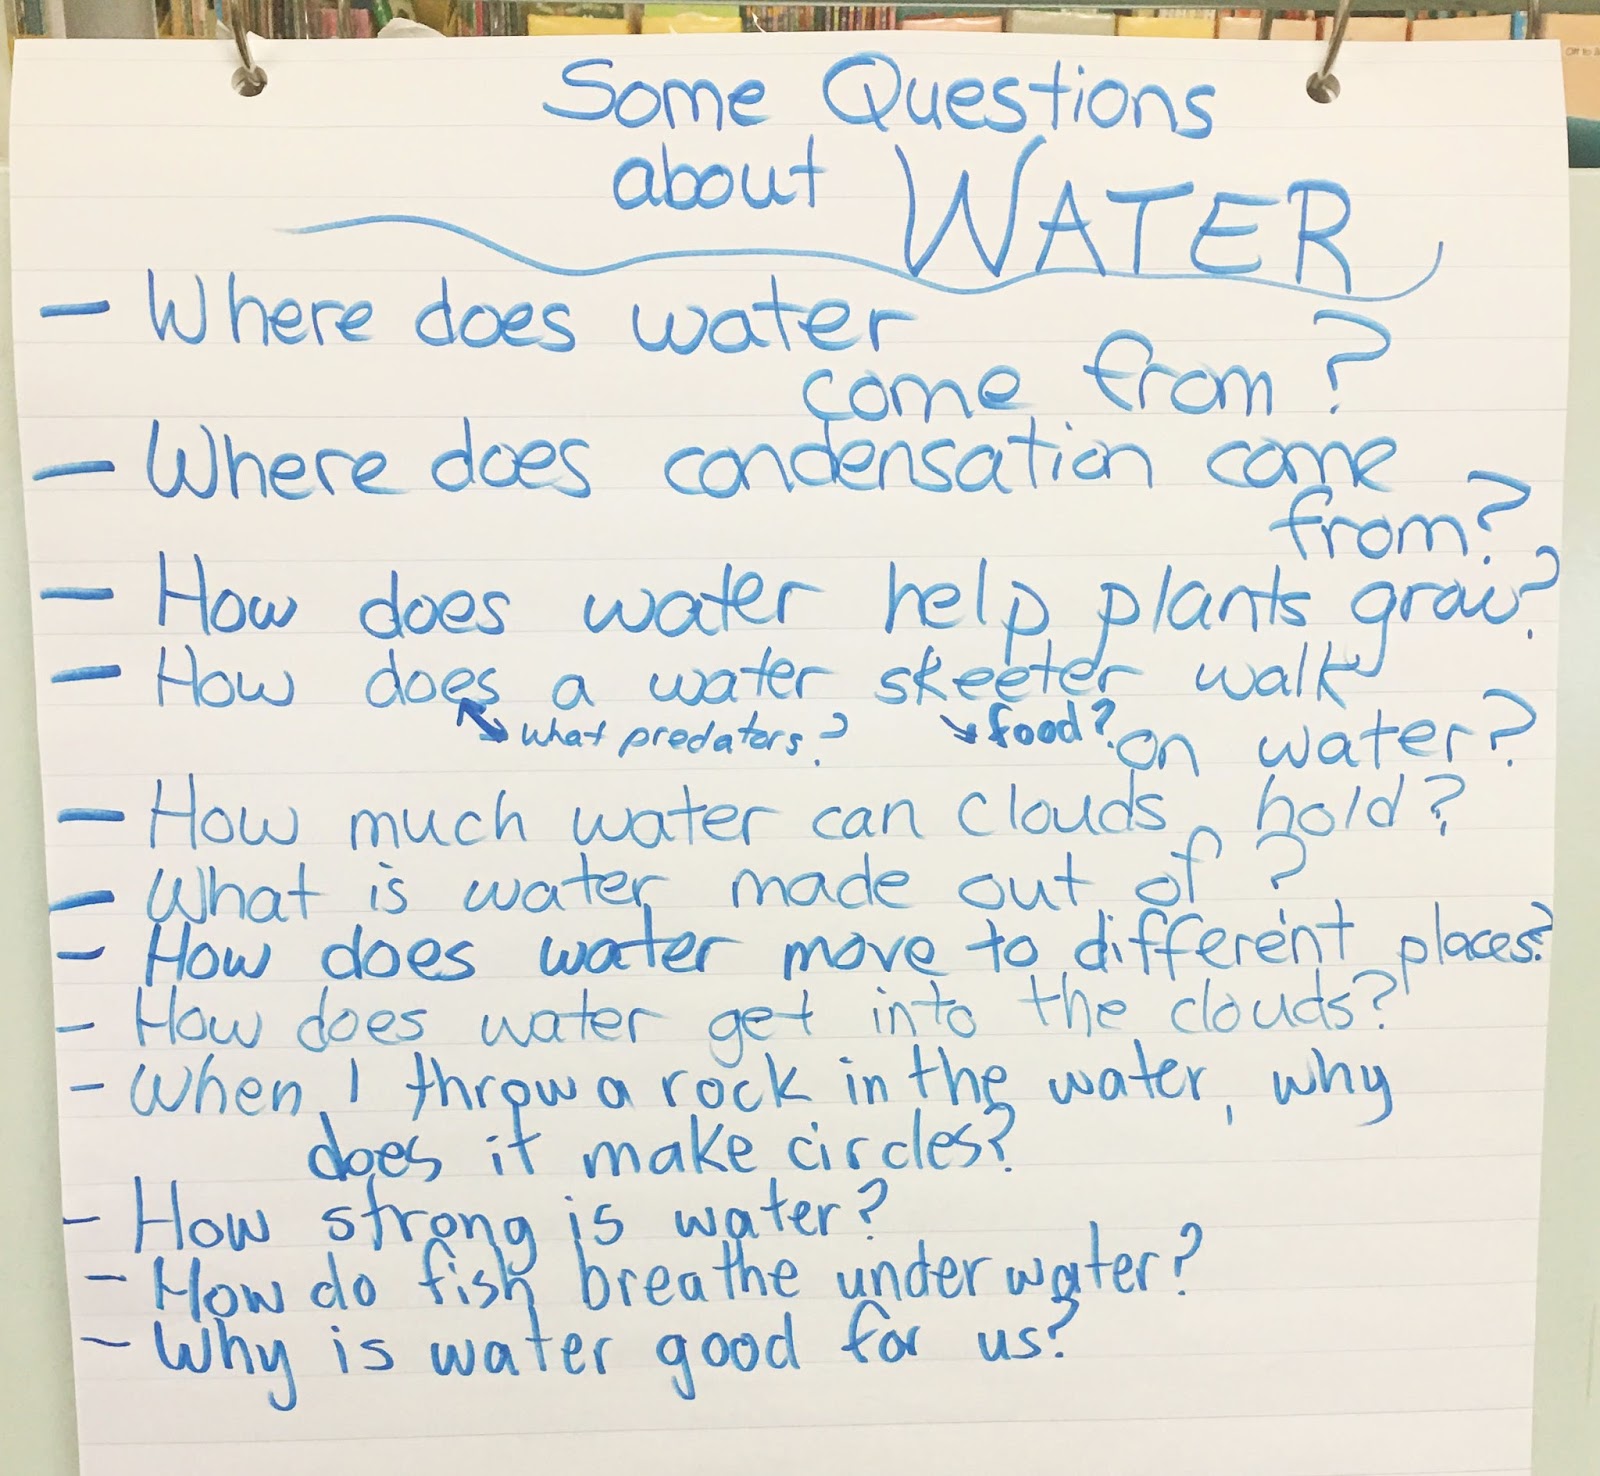 Some Questions
about WATER
- Where does water
come from?
- Where does condensation come
from?
- How does water help plants grow?
- How does a water skeeter walk
what predators? food? on water?
- How much water can clouds hold?
- What is water made out of?
- How does water move to different places?
- How does water get into the clouds?
- When I throw a rock in the water, why
does it make circles?
- How strong is water?
- How do fish breathe under water?
- Why is water good for us?